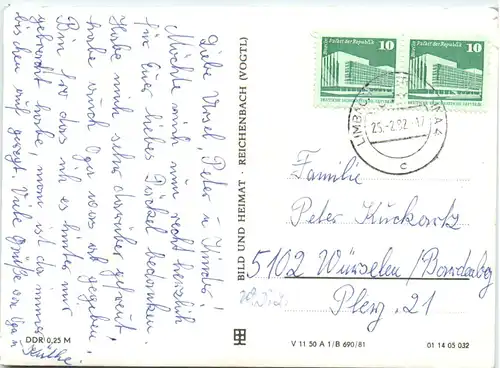 Liebe Ursel, Peter u. Kinder!
Möchte mich nun recht herzlich
für Euer liebes Päckel bedanken.
Habe mich sehr darüber gefreut.
habe auch Olga was ab gegeben.
Bin froh das ich es hinter mir
gebracht habe, man ist da immer
bis chen auf geregt. Viele Grüße von Olga u.
Käthe.
DDR 0,25 M
BILD UND HEIMAT · REICHENBACH (VOGTL)
10 Berlin Palast der Republik
DEUTSCHE DEMOKRATISCHE REPUBLIK
10 Berlin Palast der Republik
DEUTSCHE DEMOKRATISCHE REPUBLIK
LIMBACH-
25.-2.82.-17
c
Familie
Peter Kuckartz
5102 Würselen/
21
V 11 50 A 1/B 690/81
01 14 05 032